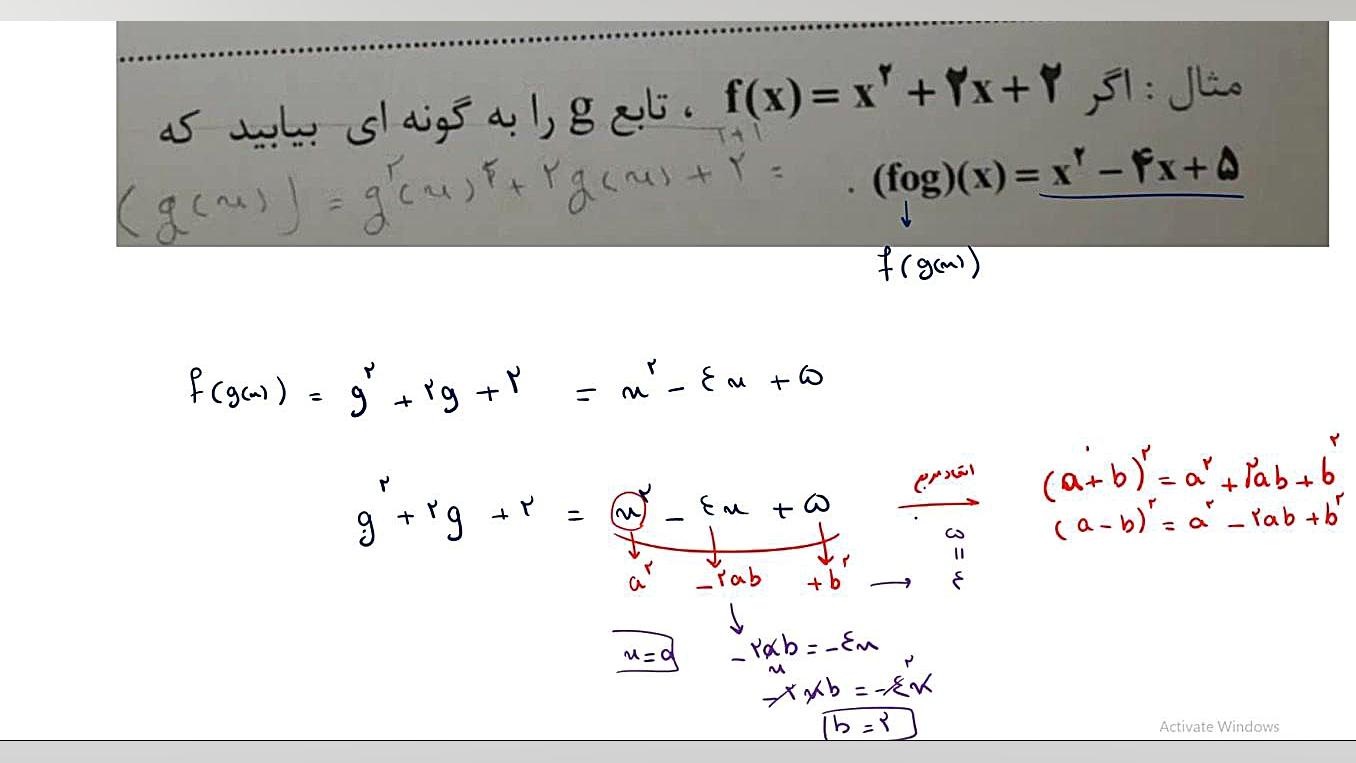 مثال : اگر f(x) = x² + ۲x + ۲ ، تابع g را به گونه ای بیابید که
(fog)(x) = x² − ۴x + ۵ .
f(g(x))
f(g(x)) = g² + ۲g + ۲ = x² − ٤x + ۵
g² + ۲g + ۲ = x² − ٤x + ۵
اتحاد مربع
(a+b)² = a² + ۲ab + b²
(a−b)² = a² − ۲ab + b²
a² −۲ab +b²
۵ = ٤
x = a
−۲ab = −٤x
−۲xb = −٤x
b = ۲
Activate Windows